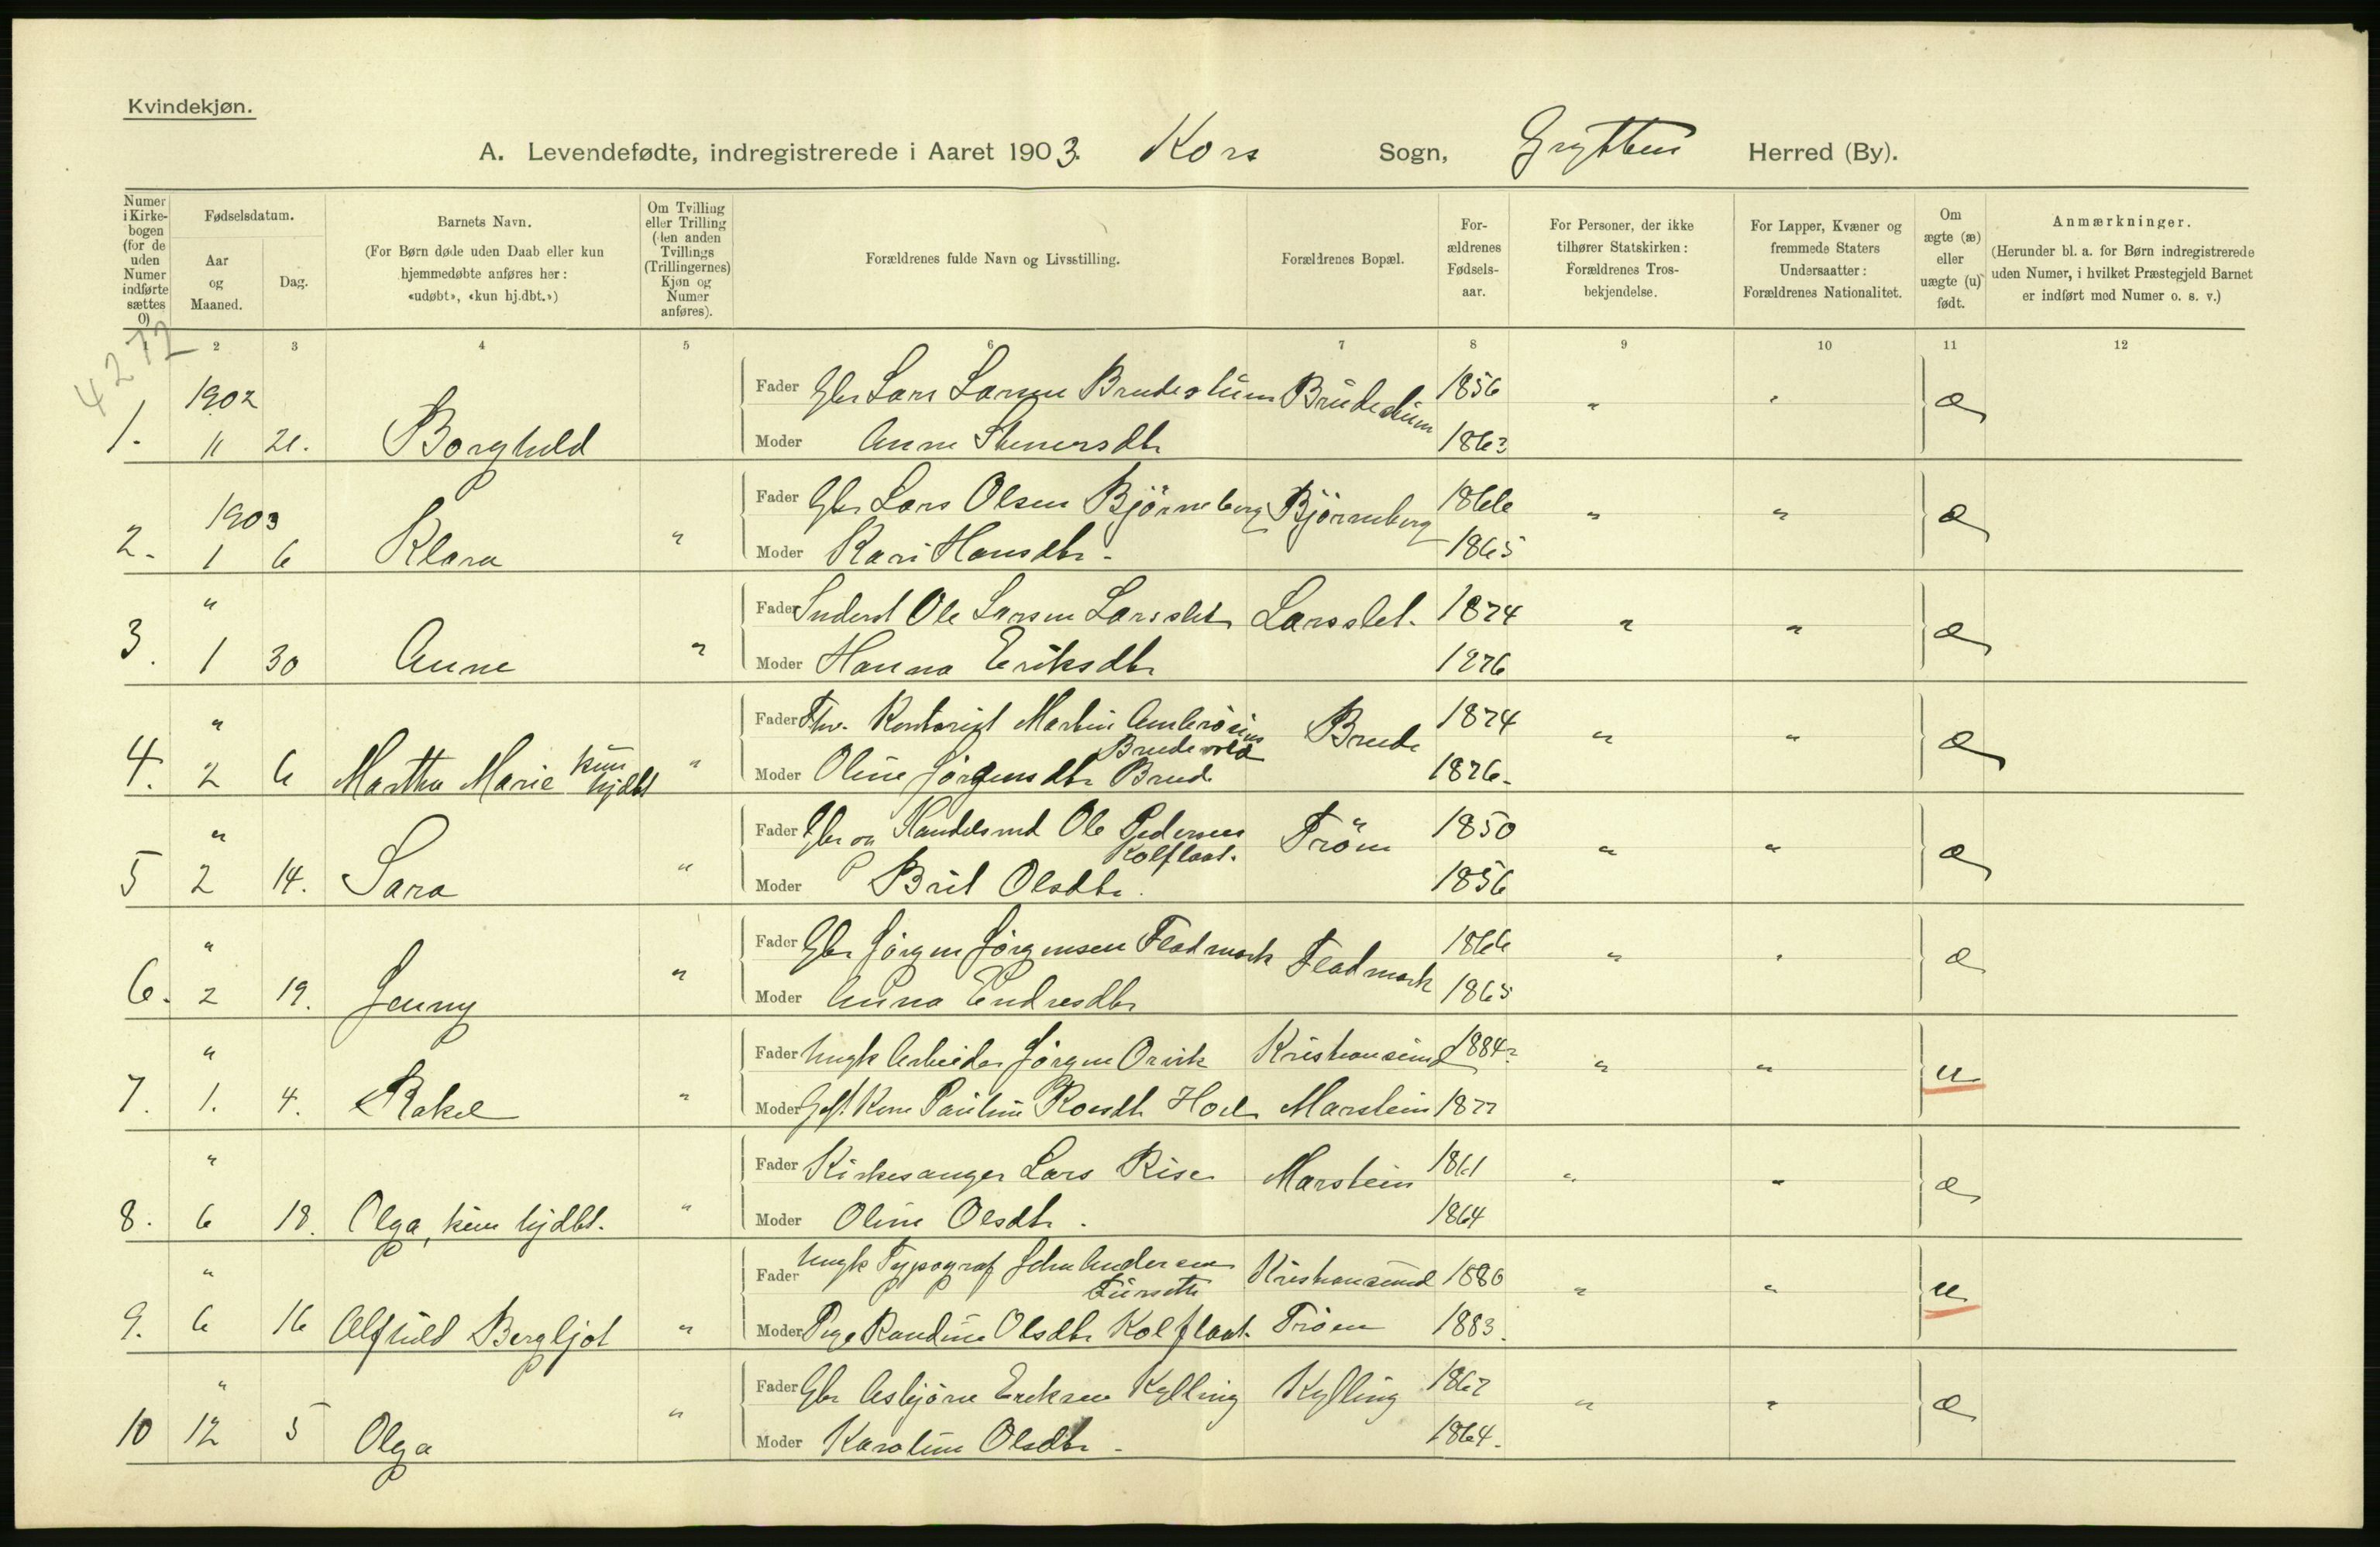 Kvindekjøn.
A. Levendefødte, indregistrerede i Aaret 1903. Kors Sogn, Grytten Herred (By).
Numer i Kirke-bogen (for de uden Numer indførte sættes 0)
Fødselsdatum.
Aar og Maaned.
Dag.
Barnets Navn.
(For Børn døde uden Daab eller kun hjemmedøbte anføres her: «udøbt», «kun hj.dbt.»)
Om Tvilling eller Trilling (den anden Tvillings (Trillingernes) Kjøn og Numer anføres).
Forældrenes fulde Navn og Livsstilling.
Forældrenes Bopæl.
For-ældrenes Fødsels-aar.
For Personer, der ikke tilhører Statskirken: Forældrenes Tros-bekjendelse.
For Lapper, Kvæner og fremmede Staters Undersaatter: Forældrenes Nationalitet.
Om ægte (æ) eller uægte (u) født.
Anmærkninger.
(Herunder bl. a. for Børn indregistrerede uden Numer, i hvilket Præstegjeld Barnet er indført med Numer o. s. v.)
1 2 3 4 5 6 7 8 9 10 11 12
4272
1902
Fader Gbr Lars Larsen Brudeslum Brudeslum 1856 " " æ
1. 11 21. Borghild
Moder Anne Stenersdtr 1863
1903
Fader Gbr Lars Olsen Bjørneberg Bjørneberg 1866 " " æ
2. 1 6 Klara "
Moder Kari Hansdtr. 1865
"
Fader Inderst Ole Larsen Larsslet Larsslet. 1874 " " æ
3. 1 30 Anne "
Moder Hanna Eriksdtr 1876
"
Fader Kontorist Martin Ambrosius Brudevold Brude 1874 " " æ
4. 2 6 Martha Marie kun hjdbt "
Moder Oline Jörgensdtr Brude 1876.
"
Fader Gbr og Handelsmd Ole Pedersen Kolflaat. Tröen 1850 " " æ
5 2 14. Sara "
Moder Brit Olsdtr. 1856
"
Fader Gbr Jörgen Jörgensen Flatmark Flatmark 1866 " " æ
6. 2 19. Jenny "
Moder Anna Endresdtr 1865
"
Fader Ungk Arbeider Jörgen Orvik Kristiansund 1884? " " u
7. 1. 4. Rakel "
Moder Gift Kone Pauline Roesdtr Hoel Marstein 1877
"
Fader Kirkesanger Lars Rise Marstein 1861 " " æ
8. 6 18. Olga, kun hjdbt. "
Moder Oline Olsdtr. 1864
"
Fader Ungk Typograf John Andersen Furseth Kristiansund 1880 " " u
9. 6 16 Alfhild Bergljot "
Moder Pige Randine Olsdtr Kolflaat Tröen 1883.
"
Fader Gbr Asbjörn Eriksen Kylling Kylling 1867 " " æ
10 12 5 Olga "
Moder Karoline Olsdtr. 1864.